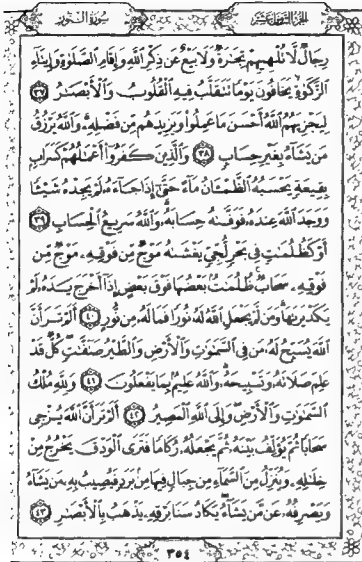 الجزء الثامن عشر
سورة النور
رِجَالٌ لَّا تُلْهِيهِمْ تِجَٰرَةٌ وَلَا بَيْعٌ عَن ذِكْرِ ٱللَّهِ وَإِقَامِ ٱلصَّلَوٰةِ وَإِيتَآءِ
ٱلزَّكَوٰةِ يَخَافُونَ يَوْمًا تَتَقَلَّبُ فِيهِ ٱلْقُلُوبُ وَٱلْأَبْصَٰرُ ٣٧
لِيَجْزِيَهُمُ ٱللَّهُ أَحْسَنَ مَا عَمِلُوا۟ وَيَزِيدَهُم مِّن فَضْلِهِۦ وَٱللَّهُ يَرْزُقُ
مَن يَشَآءُ بِغَيْرِ حِسَابٍ ٣٨ وَٱلَّذِينَ كَفَرُوٓا۟ أَعْمَٰلُهُمْ كَسَرَابٍۭ
بِقِيعَةٍ يَحْسَبُهُ ٱلظَّمْـَٔانُ مَآءً حَتَّىٰٓ إِذَا جَآءَهُۥ لَمْ يَجِدْهُ شَيْـًٔا
وَوَجَدَ ٱللَّهَ عِندَهُۥ فَوَفَّىٰهُ حِسَابَهُۥ وَٱللَّهُ سَرِيعُ ٱلْحِسَابِ ٣٩
أَوْ كَظُلُمَٰتٍ فِى بَحْرٍ لُّجِّىٍّ يَغْشَىٰهُ مَوْجٌ مِّن فَوْقِهِۦ مَوْجٌ مِّن
فَوْقِهِۦ سَحَابٌ ظُلُمَٰتٌۢ بَعْضُهَا فَوْقَ بَعْضٍ إِذَآ أَخْرَجَ يَدَهُۥ لَمْ
يَكَدْ يَرَىٰهَا وَمَن لَّمْ يَجْعَلِ ٱللَّهُ لَهُۥ نُورًا فَمَا لَهُۥ مِن نُّورٍ ٤٠ أَلَمْ تَرَ أَنَّ
ٱللَّهَ يُسَبِّحُ لَهُۥ مَن فِى ٱلسَّمَٰوَٰتِ وَٱلْأَرْضِ وَٱلطَّيْرُ صَٰٓفَّٰتٍ كُلٌّ قَدْ
عَلِمَ صَلَاتَهُۥ وَتَسْبِيحَهُۥ وَٱللَّهُ عَلِيمٌۢ بِمَا يَفْعَلُونَ ٤١ وَلِلَّهِ مُلْكُ
ٱلسَّمَٰوَٰتِ وَٱلْأَرْضِ وَإِلَى ٱللَّهِ ٱلْمَصِيرُ ٤٢ أَلَمْ تَرَ أَنَّ ٱللَّهَ يُزْجِى
سَحَابًا ثُمَّ يُؤَلِّفُ بَيْنَهُۥ ثُمَّ يَجْعَلُهُۥ رُكَامًا فَتَرَى ٱلْوَدْقَ يَخْرُجُ مِنْ
خِلَٰلِهِۦ وَيُنَزِّلُ مِنَ ٱلسَّمَآءِ مِن جِبَالٍ فِيهَا مِنۢ بَرَدٍ فَيُصِيبُ بِهِۦ مَن يَشَآءُ
وَيَصْرِفُهُۥ عَن مَّن يَشَآءُ يَكَادُ سَنَا بَرْقِهِۦ يَذْهَبُ بِٱلْأَبْصَٰرِ ٤٣
٣٥٤